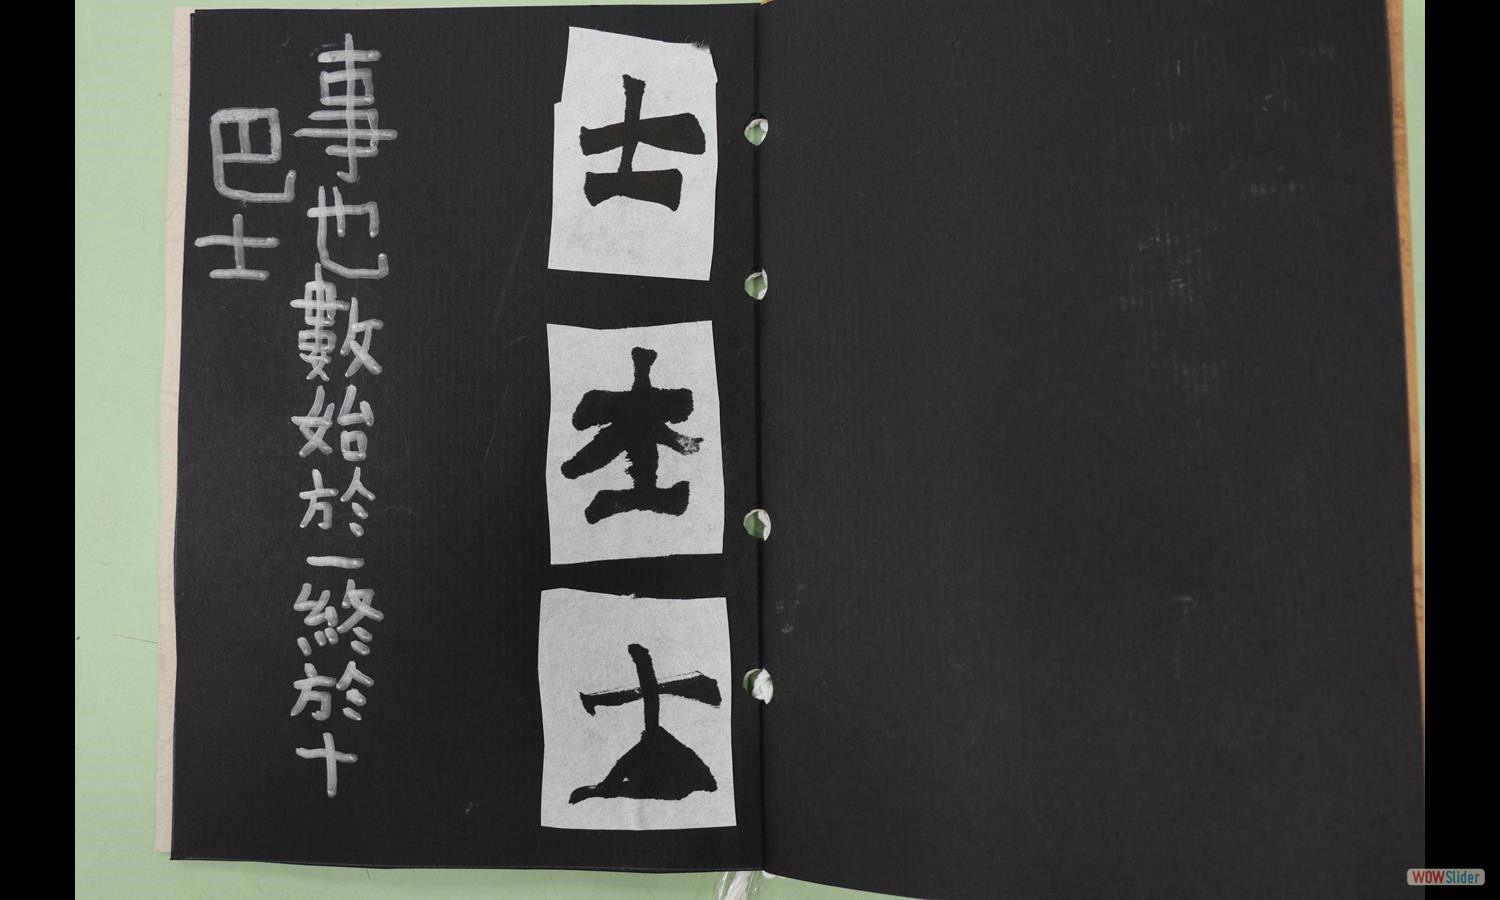 士
士
事也數始於一終於十
巴士
WOWSlider